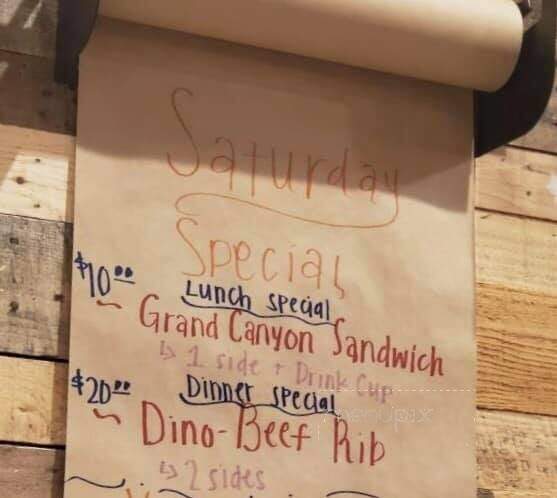 Saturday
Special
$10.00 Lunch special
~ Grand Canyon Sandwich
↳ 1 side + Drink Cup
$20.00 Dinner special
~ Dino-Beef Rib
↳ 2 sides
menupix